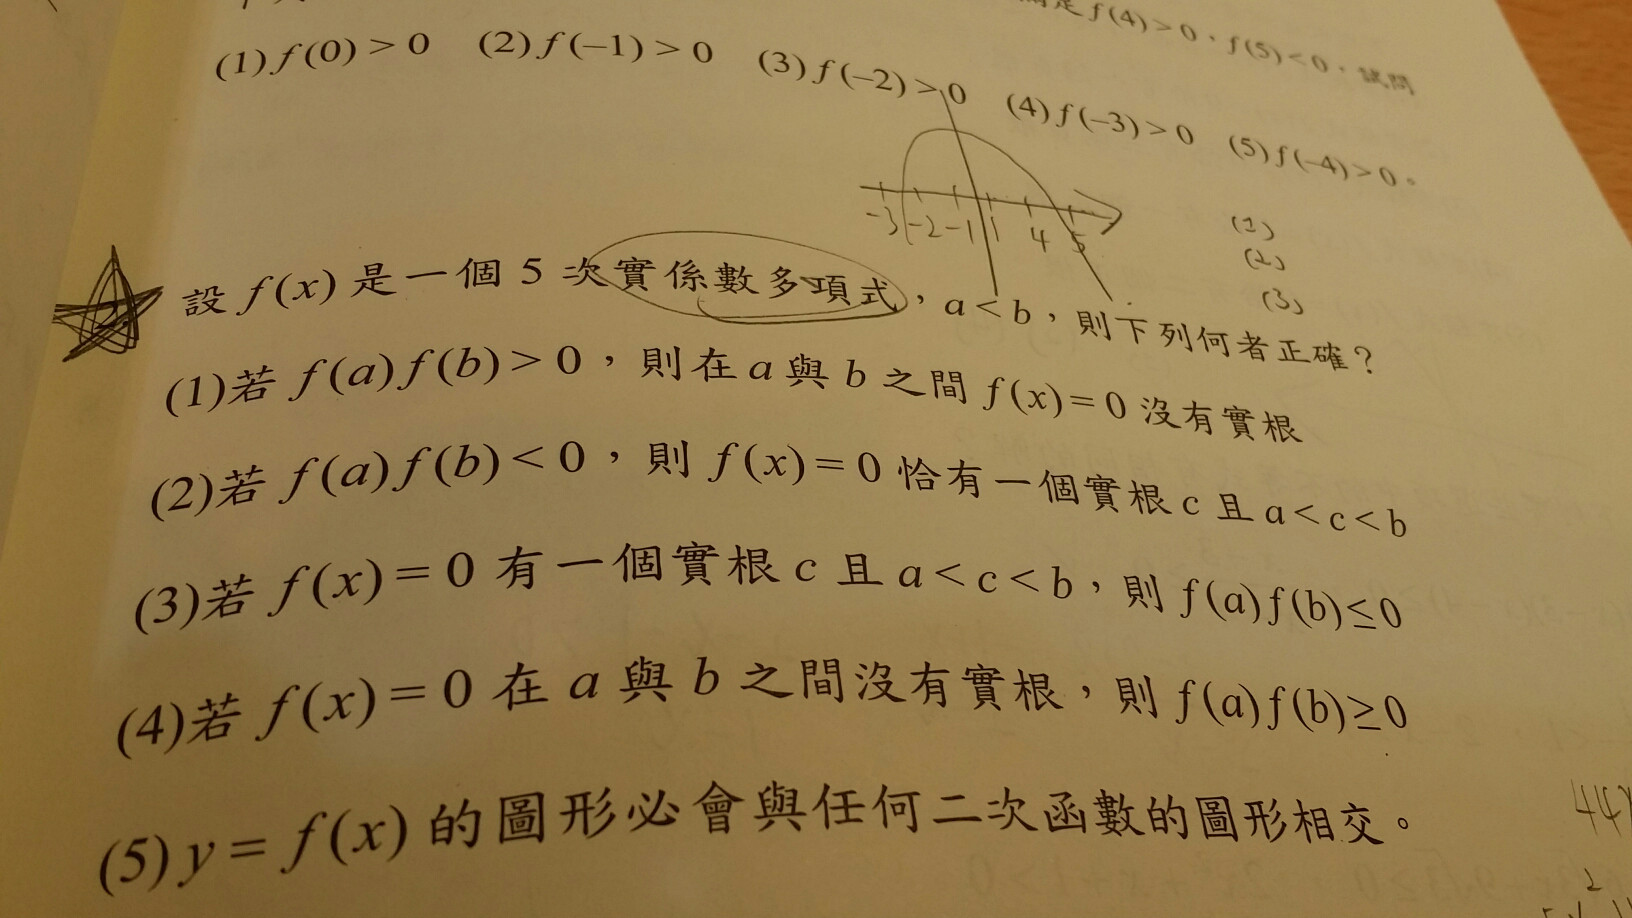 f(4)>0，f(5)<0，試問
(1)f(0)>0 (2)f(−1)>0 (3)f(−2)>0 (4)f(−3)>0 (5)f(−4)>0。
-3 -2 -1 1 4 5
(1)
(2)
(3)
設 f(x) 是一個 5 次實係數多項式，a<b，則下列何者正確？
(1)若 f(a)f(b)>0，則在 a 與 b 之間 f(x)=0 沒有實根
(2)若 f(a)f(b)<0，則 f(x)=0 恰有一個實根 c 且 a<c<b
(3)若 f(x)=0 有一個實根 c 且 a<c<b，則 f(a)f(b)≤0
(4)若 f(x)=0 在 a 與 b 之間沒有實根，則 f(a)f(b)≥0
(5) y=f(x) 的圖形必會與任何二次函數的圖形相交。